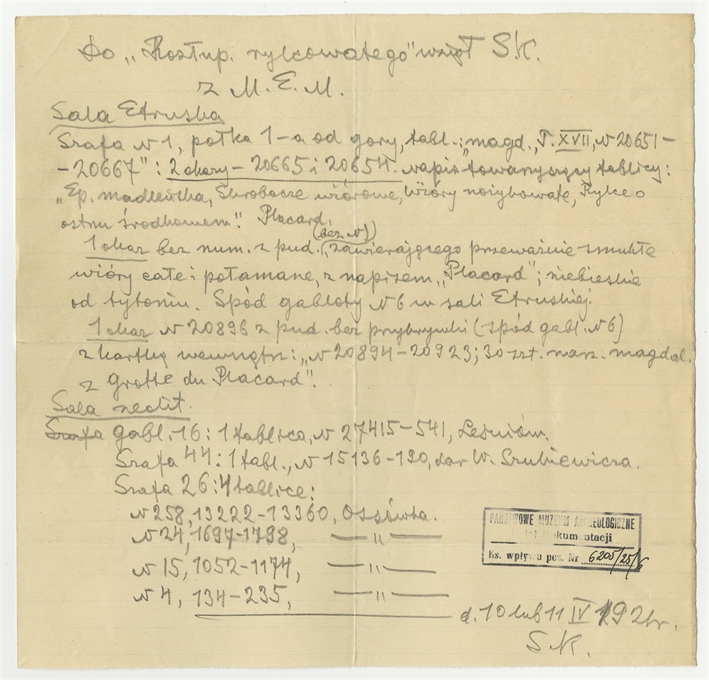 Do „Rostup. rylcowatego" wziął S.K.
z M. E. M.
Sala Etruska
Szafa N 1, półka 1-a od gory, tabl.: „magd., T. XVII, N 20651-
-20667": 2 okazy - 20665 i 20654. Napis towarzyszący tablicy:
„Ep. madleńska, Skrobacze wiórowe, Wióry Rylce o
ostrzu środkowem". Placard.
(bez N)
1 okaz bez num. z pud. zawierającego przeważnie smukłe
wióry całe i połamane, z napisem „Placard"; niebieskie
od tytoniu. Spód gabloty N6 w sali Etruskiej.
1 okaz N 20896 z pud. bez przykrywki (spód gabl. N6)
z kartką wewnątrz: „N 20894-20923; 30 szt. narz. magdal.
z grotte du Placard".
Sala neolit.
Szafa gabl. 16: 1 tablica, N 27415-541,
Szafa 44: 1 tabl., N 15136-190, dar W. Szukiewicza.
Szafa 26: 4 tablice:
N 258, 13222-13360, Ossówka.
N 24, 1697-1798, — „ —
N 15, 1052-1174, — „ —
N 4, 134-235, — „ —
PAŃSTWOWE MUZEUM ARCHEOLOGICZNE
Dział Dokumentacji
Ks. wpływu poz. Nr 6205/25/6
d. 10 lub 11 IV 192 r.
S.K.